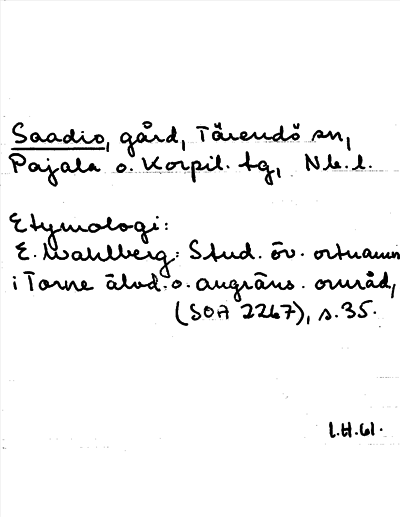 Saadio, gård, Tärendö sn,
Pajala o. Korpil. tg, Nb. l.
Etymologi:
E. Wahlberg: Stud. öv. ortnamn
i Torne älvd. o. angräns. områd,
(SOA 2267), s. 35.
I.H.61.